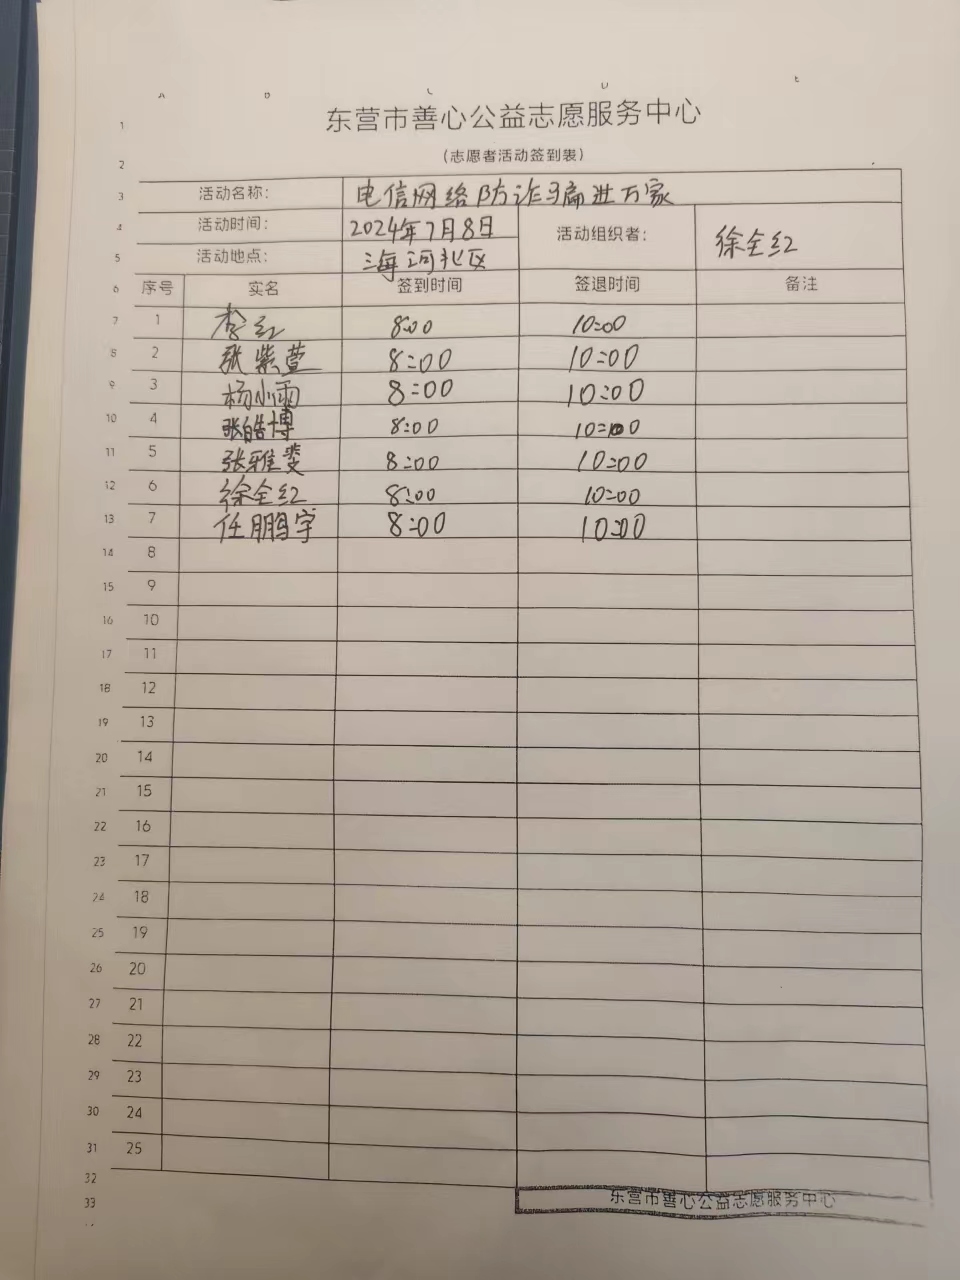 A B C D E
1 东营市善心公益志愿服务中心
2 (志愿者活动签到表)
3 活动名称: 电信网络防诈骗进万家
4 活动时间: 2024年7月8日 活动组织者: 徐全红
5 活动地点: 海河北区
6 序号 实名 签到时间 签退时间 备注
7 1 李红 8:00 10:00
8 2 张紫萱 8:00 10:00
9 3 杨小雨 8:00 10:00
10 4 张皓博 8:00 10:00
11 5 张雅雯 8:00 10:00
12 6 徐全红 8:00 10:00
13 7 任鹏宇 8:00 10:00
14 8
15 9
16 10
17 11
18 12
19 13
20 14
21 15
22 16
23 17
24 18
25 19
26 20
27 21
28 22
29 23
30 24
31 25
32
33 东营市善心公益志愿服务中心